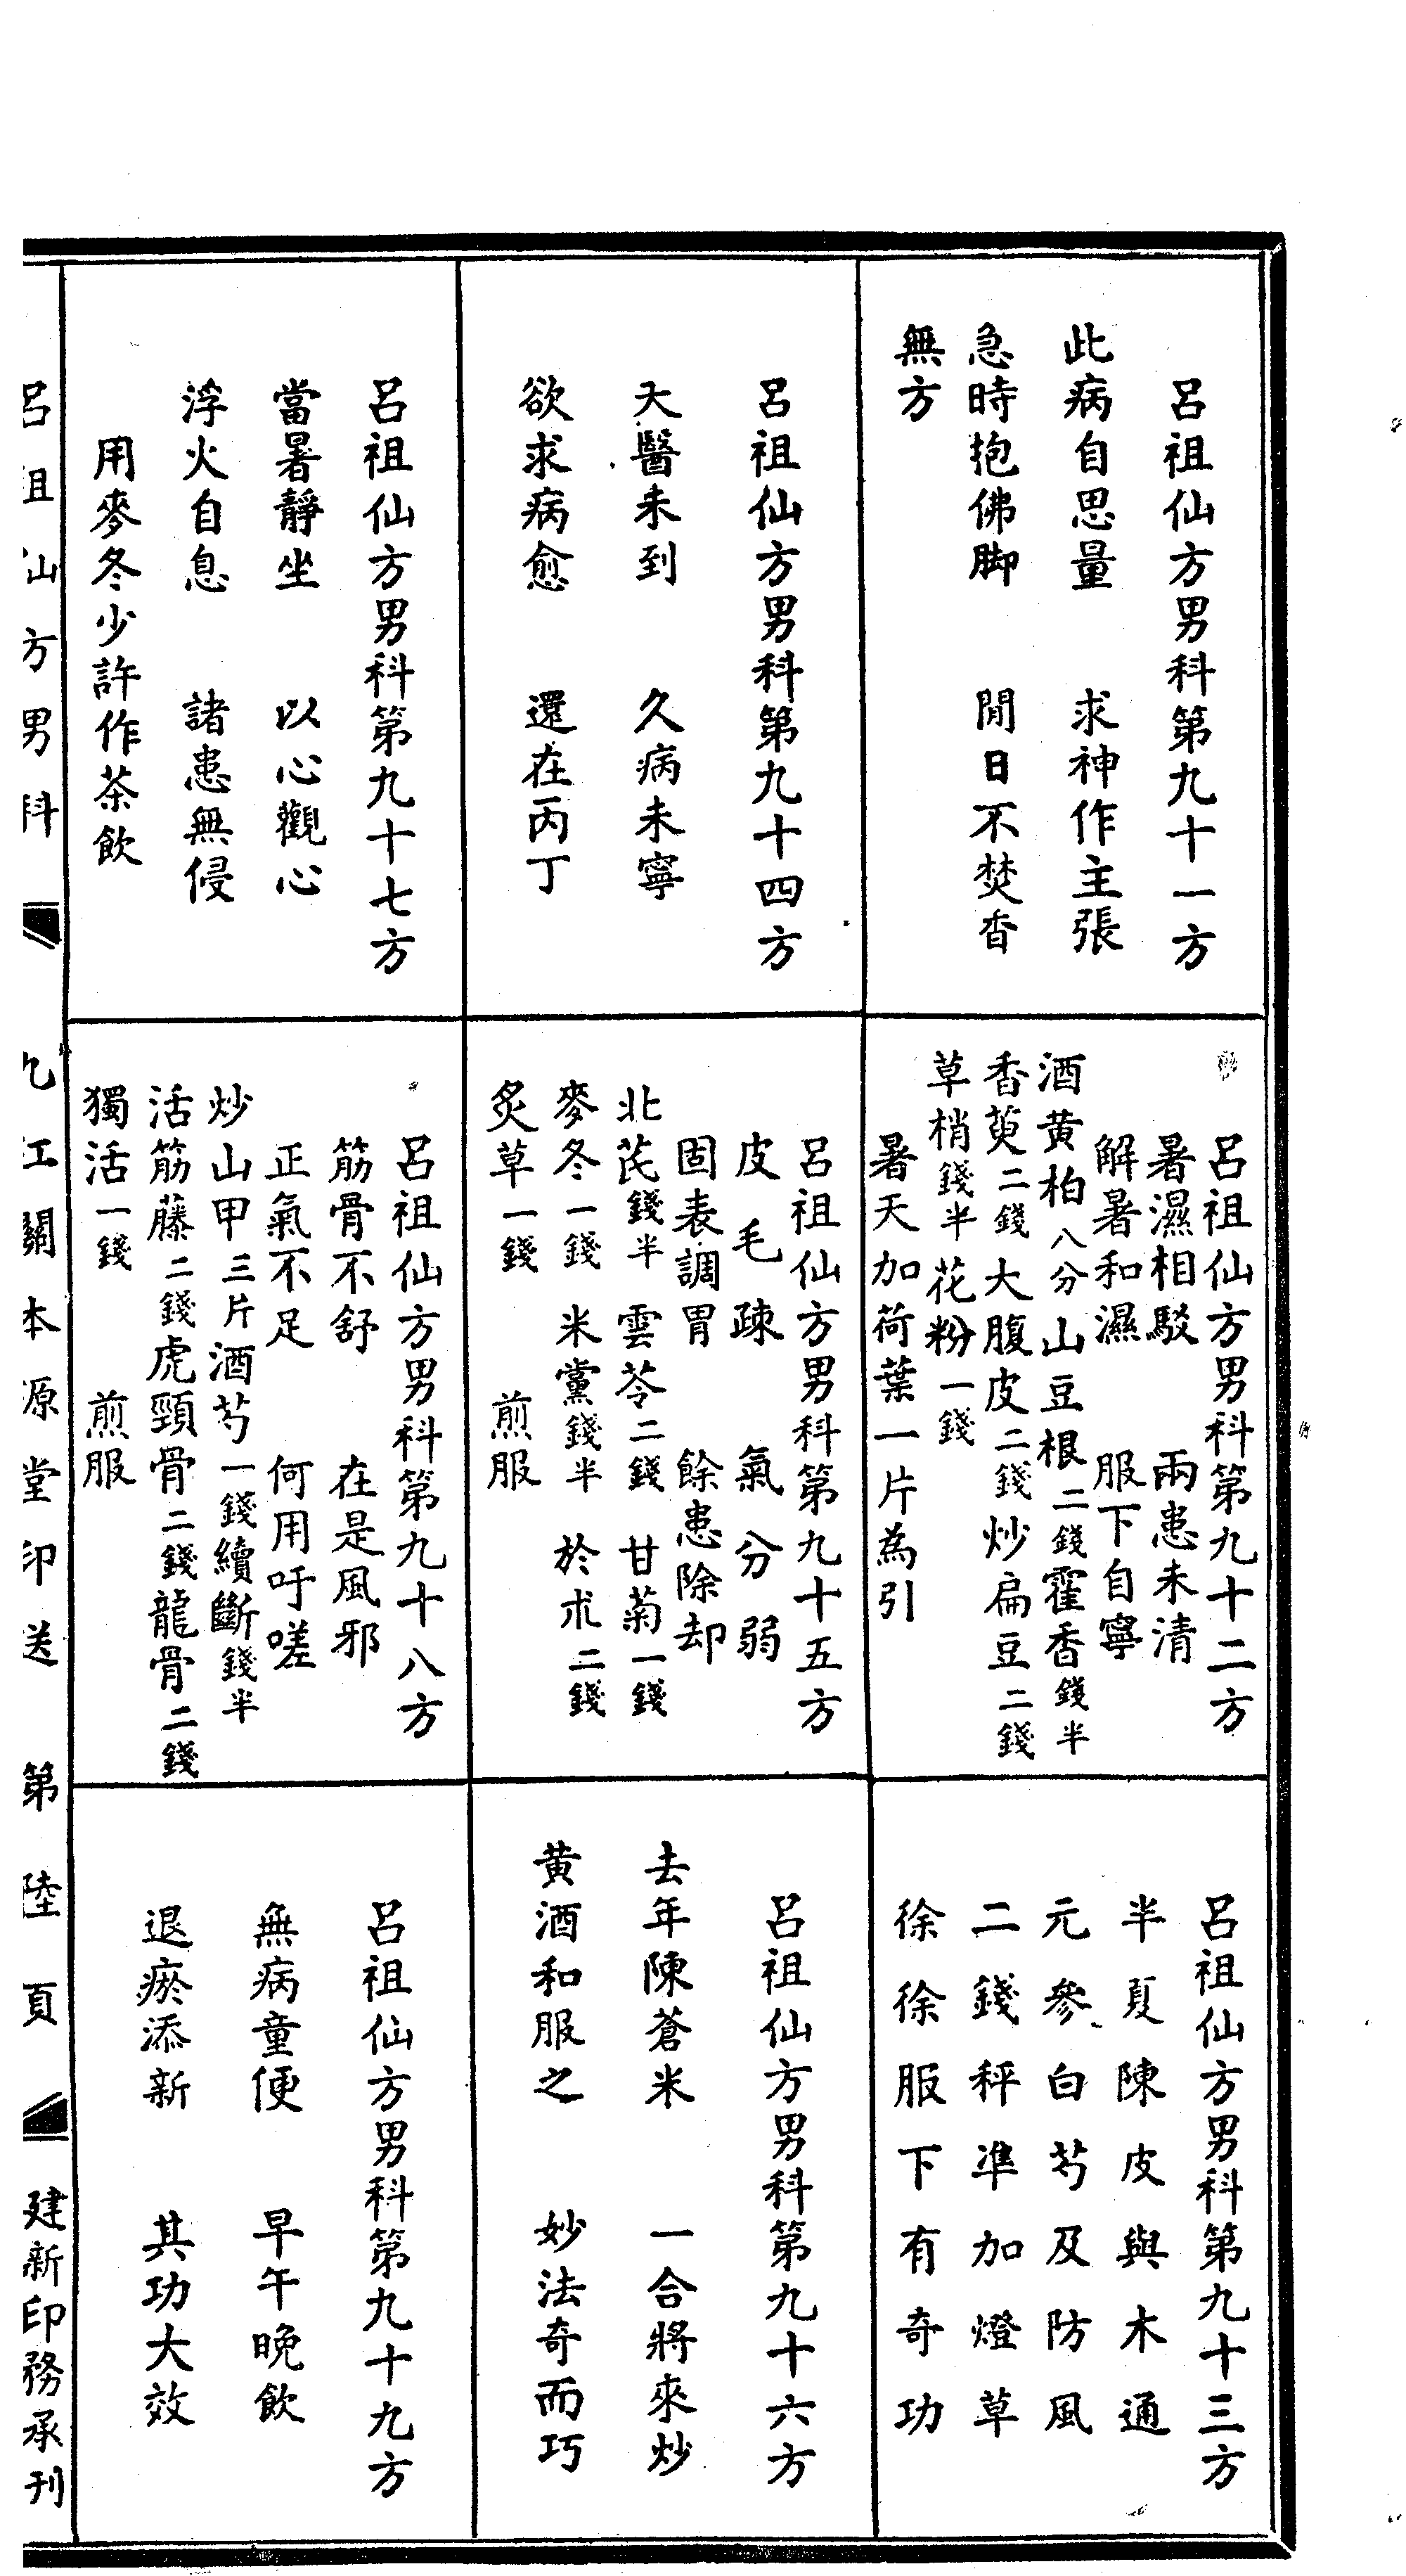 呂祖仙方男科第九十一方
此病自思量　求神作主張
急時抱佛脚　閒日不焚香
無方
呂祖仙方男科第九十二方
暑濕相駁　兩患未清
解暑和濕　服下自寧
酒黄柏八分山豆根二錢霍香錢半
香萸二錢大腹皮二錢炒扁豆二錢
草梢錢半花粉一錢
暑天加荷葉一片為引
呂祖仙方男科第九十三方
半夏陳皮與木通
元參白芍及防風
二錢秤準加燈草
徐徐服下有奇功
呂祖仙方男科第九十四方
天醫未到　久病未寧
欲求病愈　還在丙丁
呂祖仙方男科第九十五方
皮毛疎　氣分弱
固表調胃　餘患除却
北芪錢半　雲苓二錢　甘菊一錢
麥冬一錢　米黨錢半　於朮二錢
炙草一錢　煎服
呂祖仙方男科第九十六方
去年陳蒼米　一合將來炒
黄酒和服之　妙法奇而巧
呂祖仙方男科第九十七方
當暑靜坐　以心觀心
浮火自息　諸患無侵
用麥冬少許作茶飲
呂祖仙方男科第九十八方
筋骨不舒　在是風邪
正氣不足　何用吁嗟
炒山甲三片酒芍一錢續斷錢半
活筋藤二錢虎頸骨二錢龍骨二錢
獨活一錢　煎服
呂祖仙方男科第九十九方
無病童便　早午晚飲
退瘀添新　其功大效
呂祖仙方男科　九江關本源堂印送　第陸頁　建新印務承刊